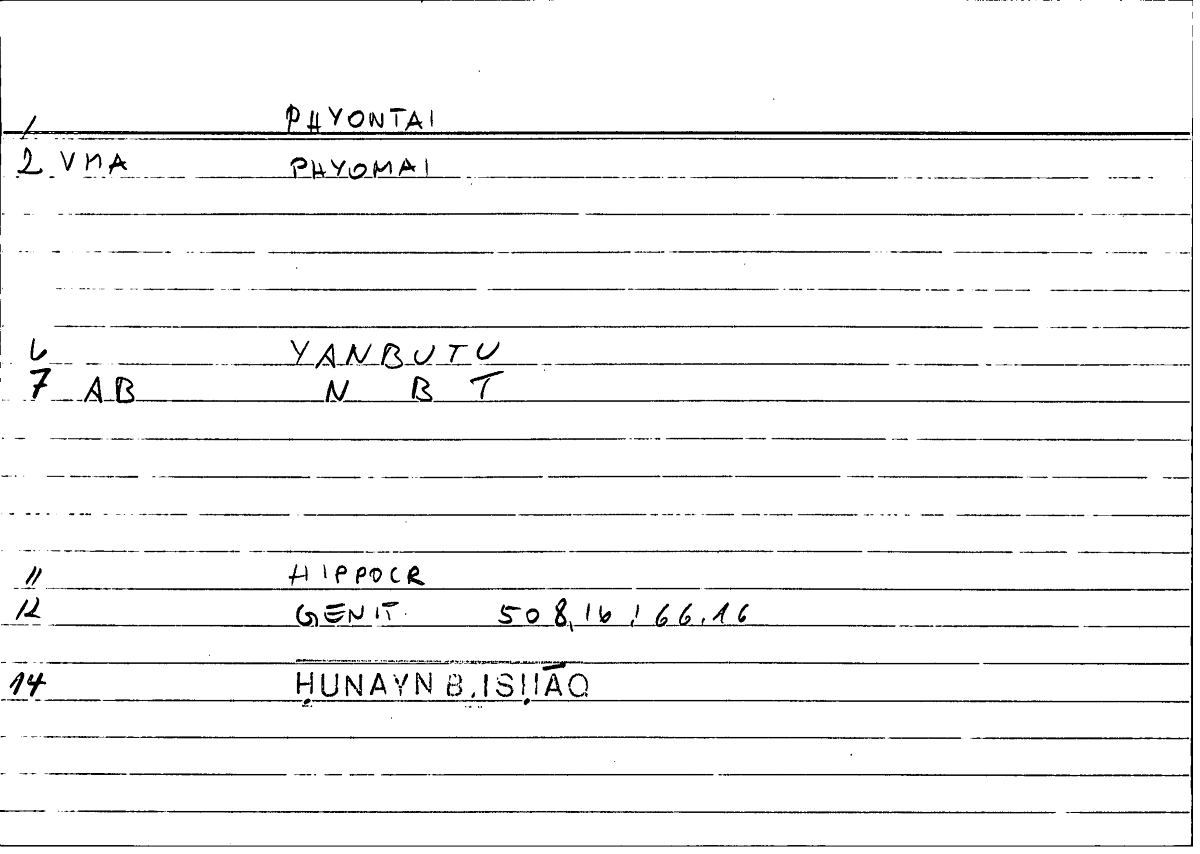 1 PHYONTAI
2 VMA PHYOMAI
6 YANBUTU
7 AB N B T
11 HIPPOCR
12 GENIT. 508,16 ; 66,16
14 ḤUNAYN B. ISḤĀQ